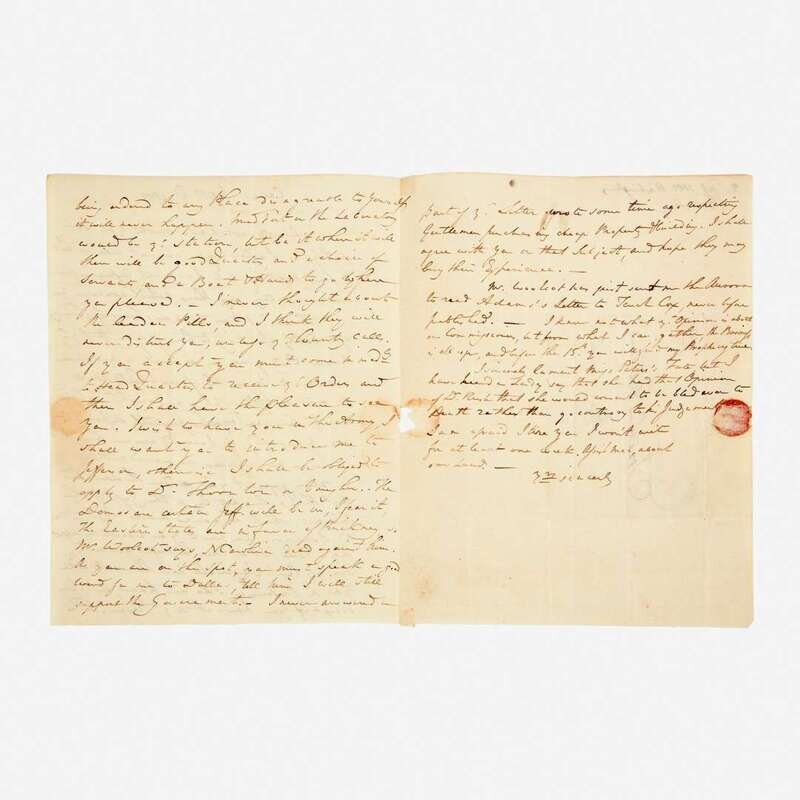 being ordered to any Place disagreeable to yourself
it will never happen. the Laboratory
would be yr station, but be it where it will
there will be good Quarters and a choice of
Servants, and a Boat & Hands to go where
you pleased. — I never thought about
the Leaden Pills, and I think they will
never disturb you, we age & County calls.
If you accept you must come to
Head Quarters to receive yr Orders and
then I shall have the pleasure to see
you. I wish to have you in the Army, I
shall want you to introduce me to
Jefferson, otherwise I shall be obliged to
apply to Dr. or Vaughn. The
Demos are certain Jeffn will be in, I fear it,
the Eastern States are in favour of Pinckney so
Mr. Wolcott says, N Carolina dead against him.
As you are on the spot, you must speak a good
word for me to Dallas, tell him I will still
support the Government. — I never answered a
part of yr. Letter wrote some time ago respecting
Gentlemen purchasing cheap Property. I shall
agree with you on that Subject, and hope they may
buy their Experience. —
Mr. Wolcott has just sent me the Aurora
to read Adams's Letter to Tench Cox never before
published. — I know not what yr Opinion is about
our Commissioners, but from what I can gather, the Business
is all up, and before the 15th you will find my Prophecy true.
I sincerely lament Miss Peters's Fate but I
have heard a Lady say that she had that Opinion
of Dr Rush that she would consent to be bled even to
Death rather than go contrary to his Judgement
I am afraid I tire you I won't write
for at least one week, Yours Mrs. about
our Land. —
Yrs sincerely